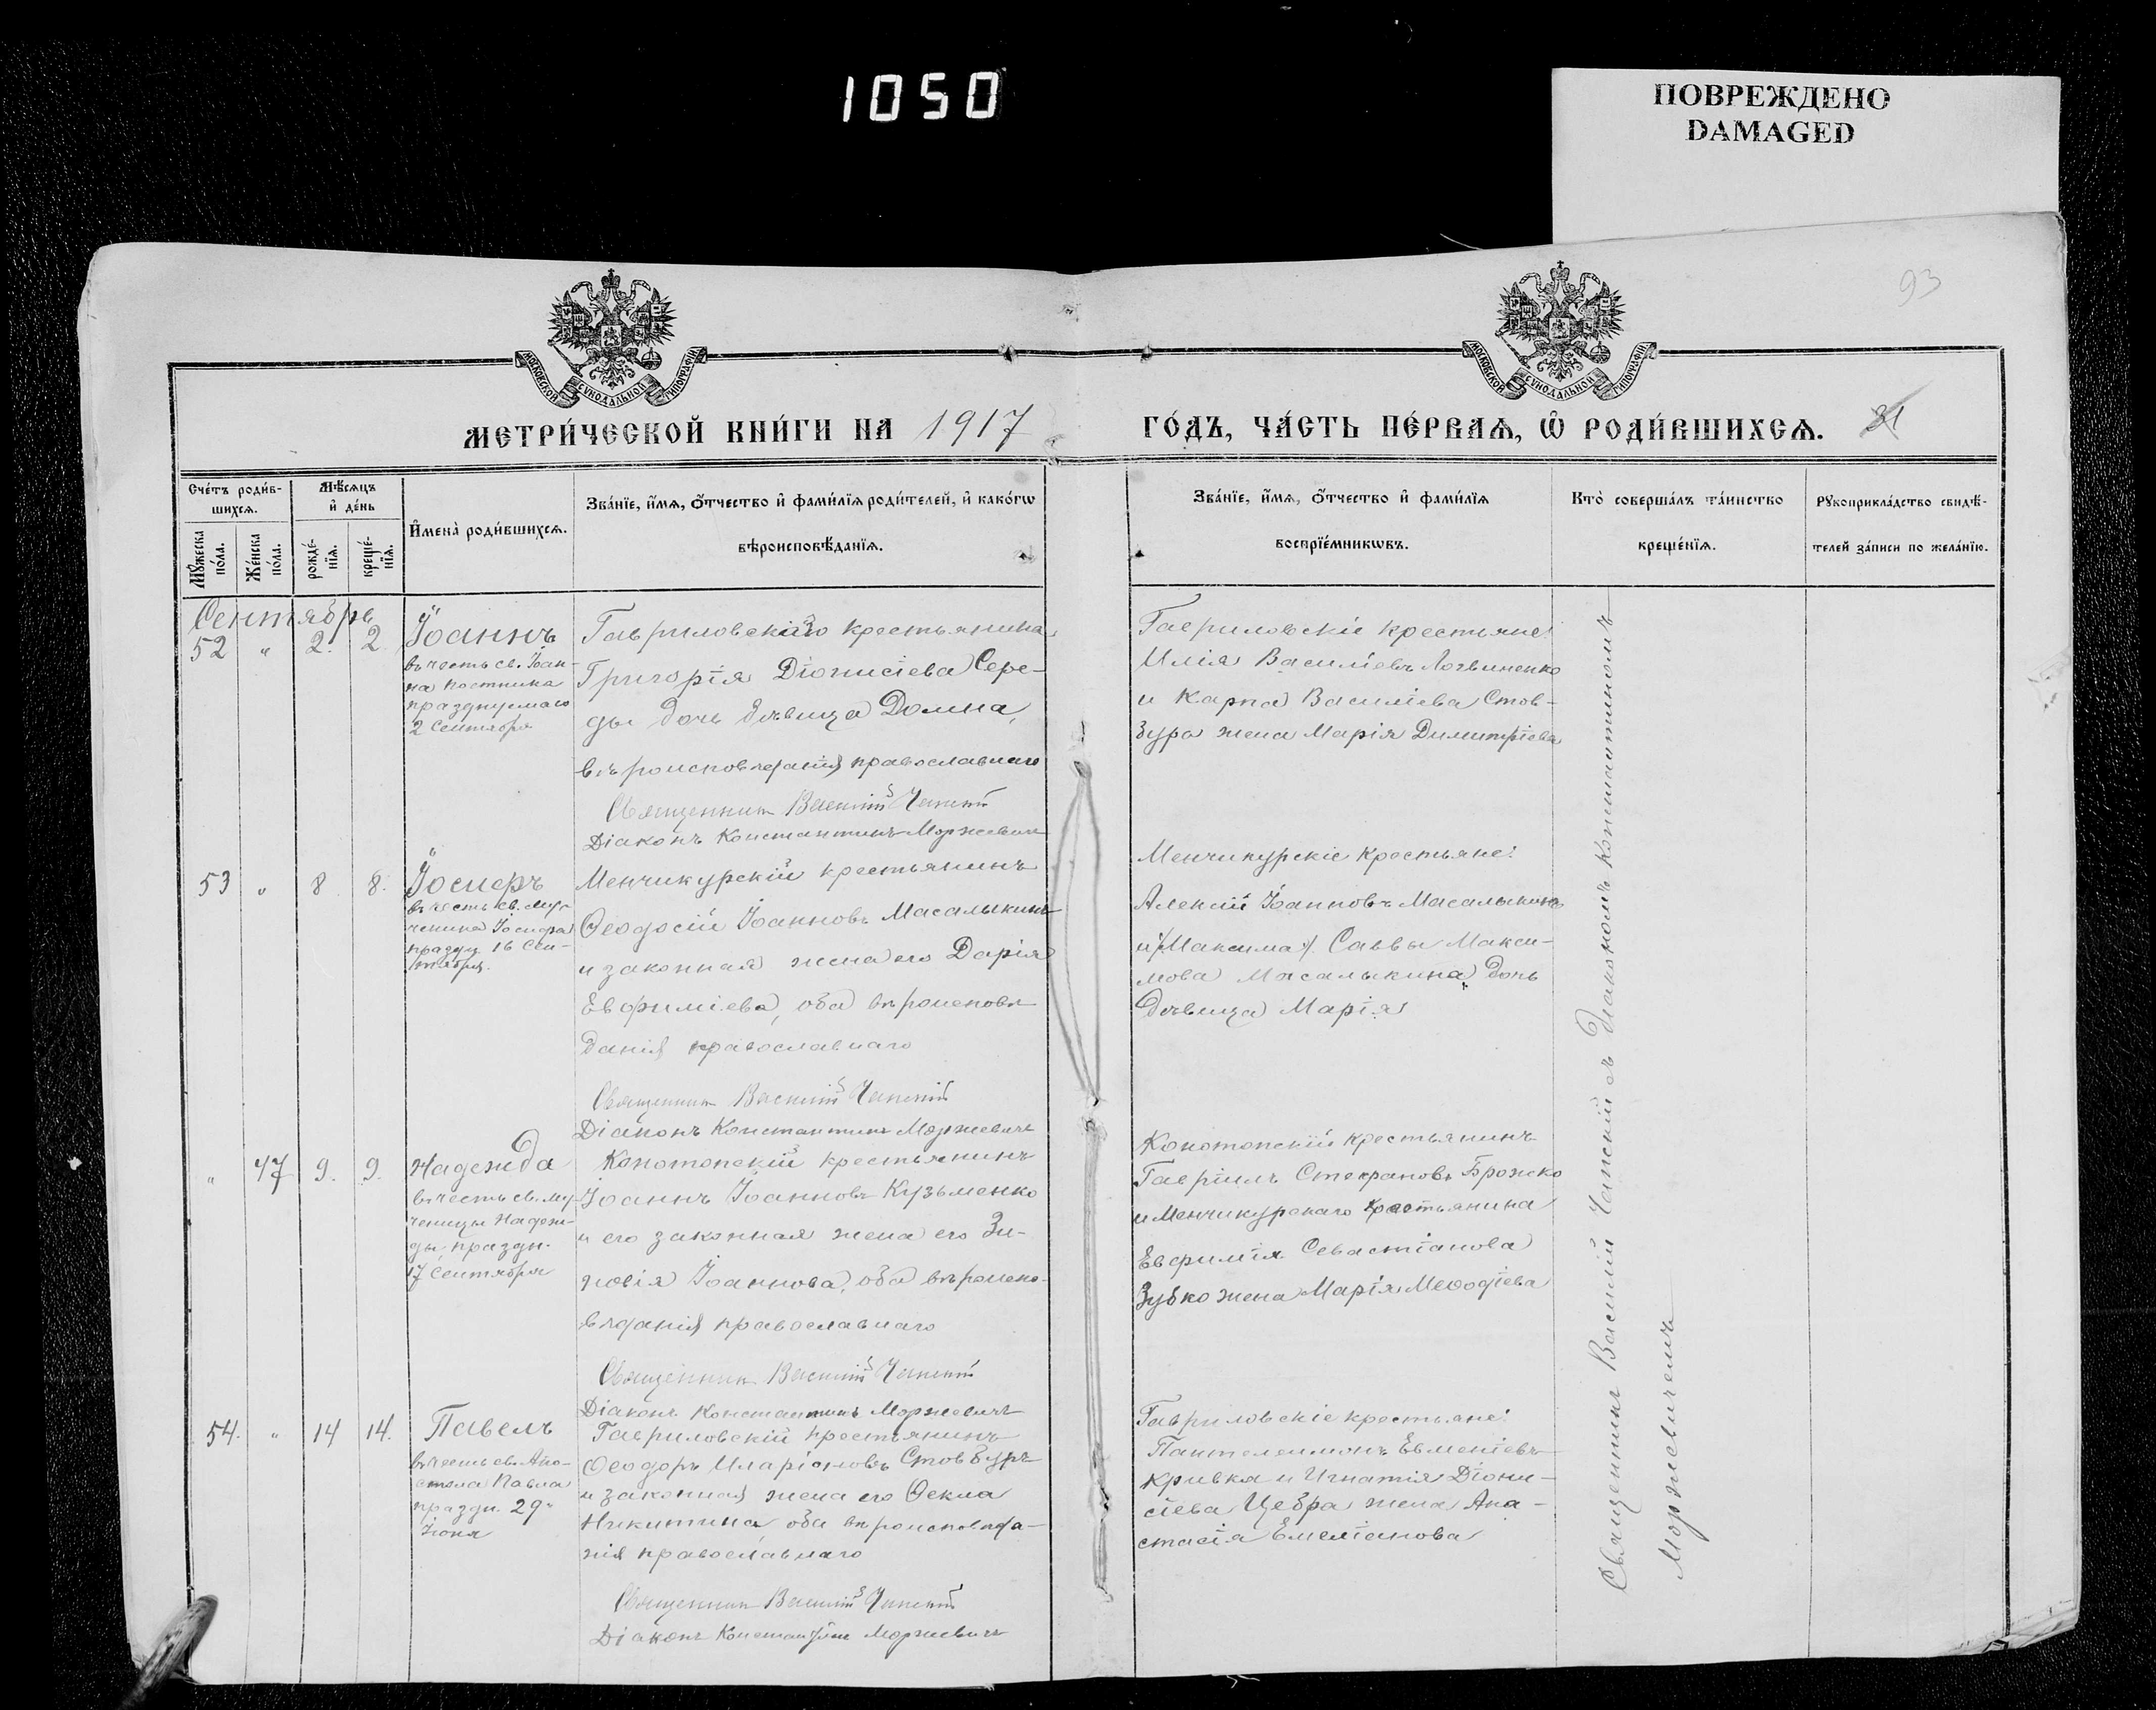 1050
ПОВРЕЖДЕНО
DAMAGED
93
МОСКОВСКОЙ СѴНОДАЛЬНОЙ ТИПОГРАФІИ
МОСКОВСКОЙ СѴНОДАЛЬНОЙ ТИПОГРАФІИ
МЕТРИ́ЧЕСКОЙ КНИ́ГИ НА 1917
ГО́ДЪ, ЧА́СТЬ ПЕ́РВАѦ, Ѽ РОДИ́ВШИХСѦ. 31
Сче́тъ роди́в-
шихсѧ.
Мꙋ́жеска по́ла.
Же́нска по́ла.
Мѣ́сѧцъ
и҆ де́нь
рожде́-
нїѧ.
креще́-
нїѧ.
И҆мена̀ роди́вшихсѧ.
Зва́нїе, и҆́мѧ, ѻ҆́тчество и҆ фами́лїѧ роди́телей, и҆ како́гѡ
вѣроисповѣ́данїѧ.
Зва́нїе, и҆́мѧ, ѻ҆́тчество и҆ фами́лїѧ
воспрїе́мникѡвъ.
Кто̀ соверша́лъ та́инство
креще́нїѧ.
Рꙋкоприкла́дство свидѣ́-
телей за́писи по жела́нїю.
Сентябрь
52 " 2. 2.
Іоаннъ
въ честь св. Іоан-
на Постника
празднуемаго
2 Сентября
Гавриловскаго крестьянина
Григорія Діонисіева Сере-
ды дочь девица Домна,
вѣроисповѣданія православнаго
Священникъ Василій Чапскій
Діаконъ Константинъ Моржевичъ
Гавриловскіе крестьяне:
Илія Василіевъ Логвиненко
и Карпа Василіева Стов-
бура жена Марія Димитріева
53 " 8 8.
Іосифъ
въ честь св. Му-
ченика Іосифа
праздн. 16 Сен-
тября.
Менчикурскій крестьянинъ
Ѳеодосій Іоанновъ Масалыкинъ
и законная жена его Дарія
Евфиміева, оба вѣроисповѣ
данія православнаго
Священникъ Василій Чапскій
Діаконъ Константинъ Моржевичъ
Менчикурскіе крестьяне:
Алексій Іоанновъ Масалыкинъ
и /Максима/ Саввы Макси-
мова Масалыкина дочь
девица Марія
" 47 9. 9.
Надежда
въ честь св. му-
ченицы Надеж-
ды, праздн.
17 Сентября
Конотопскій крестьянинъ
Іоаннъ Іоанновъ Кузьменко
и его законная жена его Зи-
новія Іоаннова, оба вѣроиспо-
вѣданія православнаго
Священникъ Василій Чапскій
Діаконъ Константинъ Моржевичъ
Конотопскій крестьянинъ
Гавріилъ Стефановъ Брожко
и Менчикурскаго крестьянина
Евфимія Севастіанова
Зубко жена Марія Меѳодіева
54. " 14 14.
Павелъ
въ честь св. Апо-
стола Павла
праздн. 29
Іюня
Гавриловскій крестьянинъ
Ѳеодоръ Иларіоновъ Стовбуръ
и законная жена его Ѳекла
Никитина, оба вѣроисповѣда-
нія православнаго
Священникъ Василій Чапскій
Діаконъ Константинъ Моржевичъ
Гавриловскіе крестьяне:
Пантелеимонъ Евменіевъ
Кривка и Игнатія Діони-
сіева Цебра жена Ана-
стасія Емеліанова
Священникъ Василій Чапскій съ Діакономъ Константиномъ
Моржевичемъ